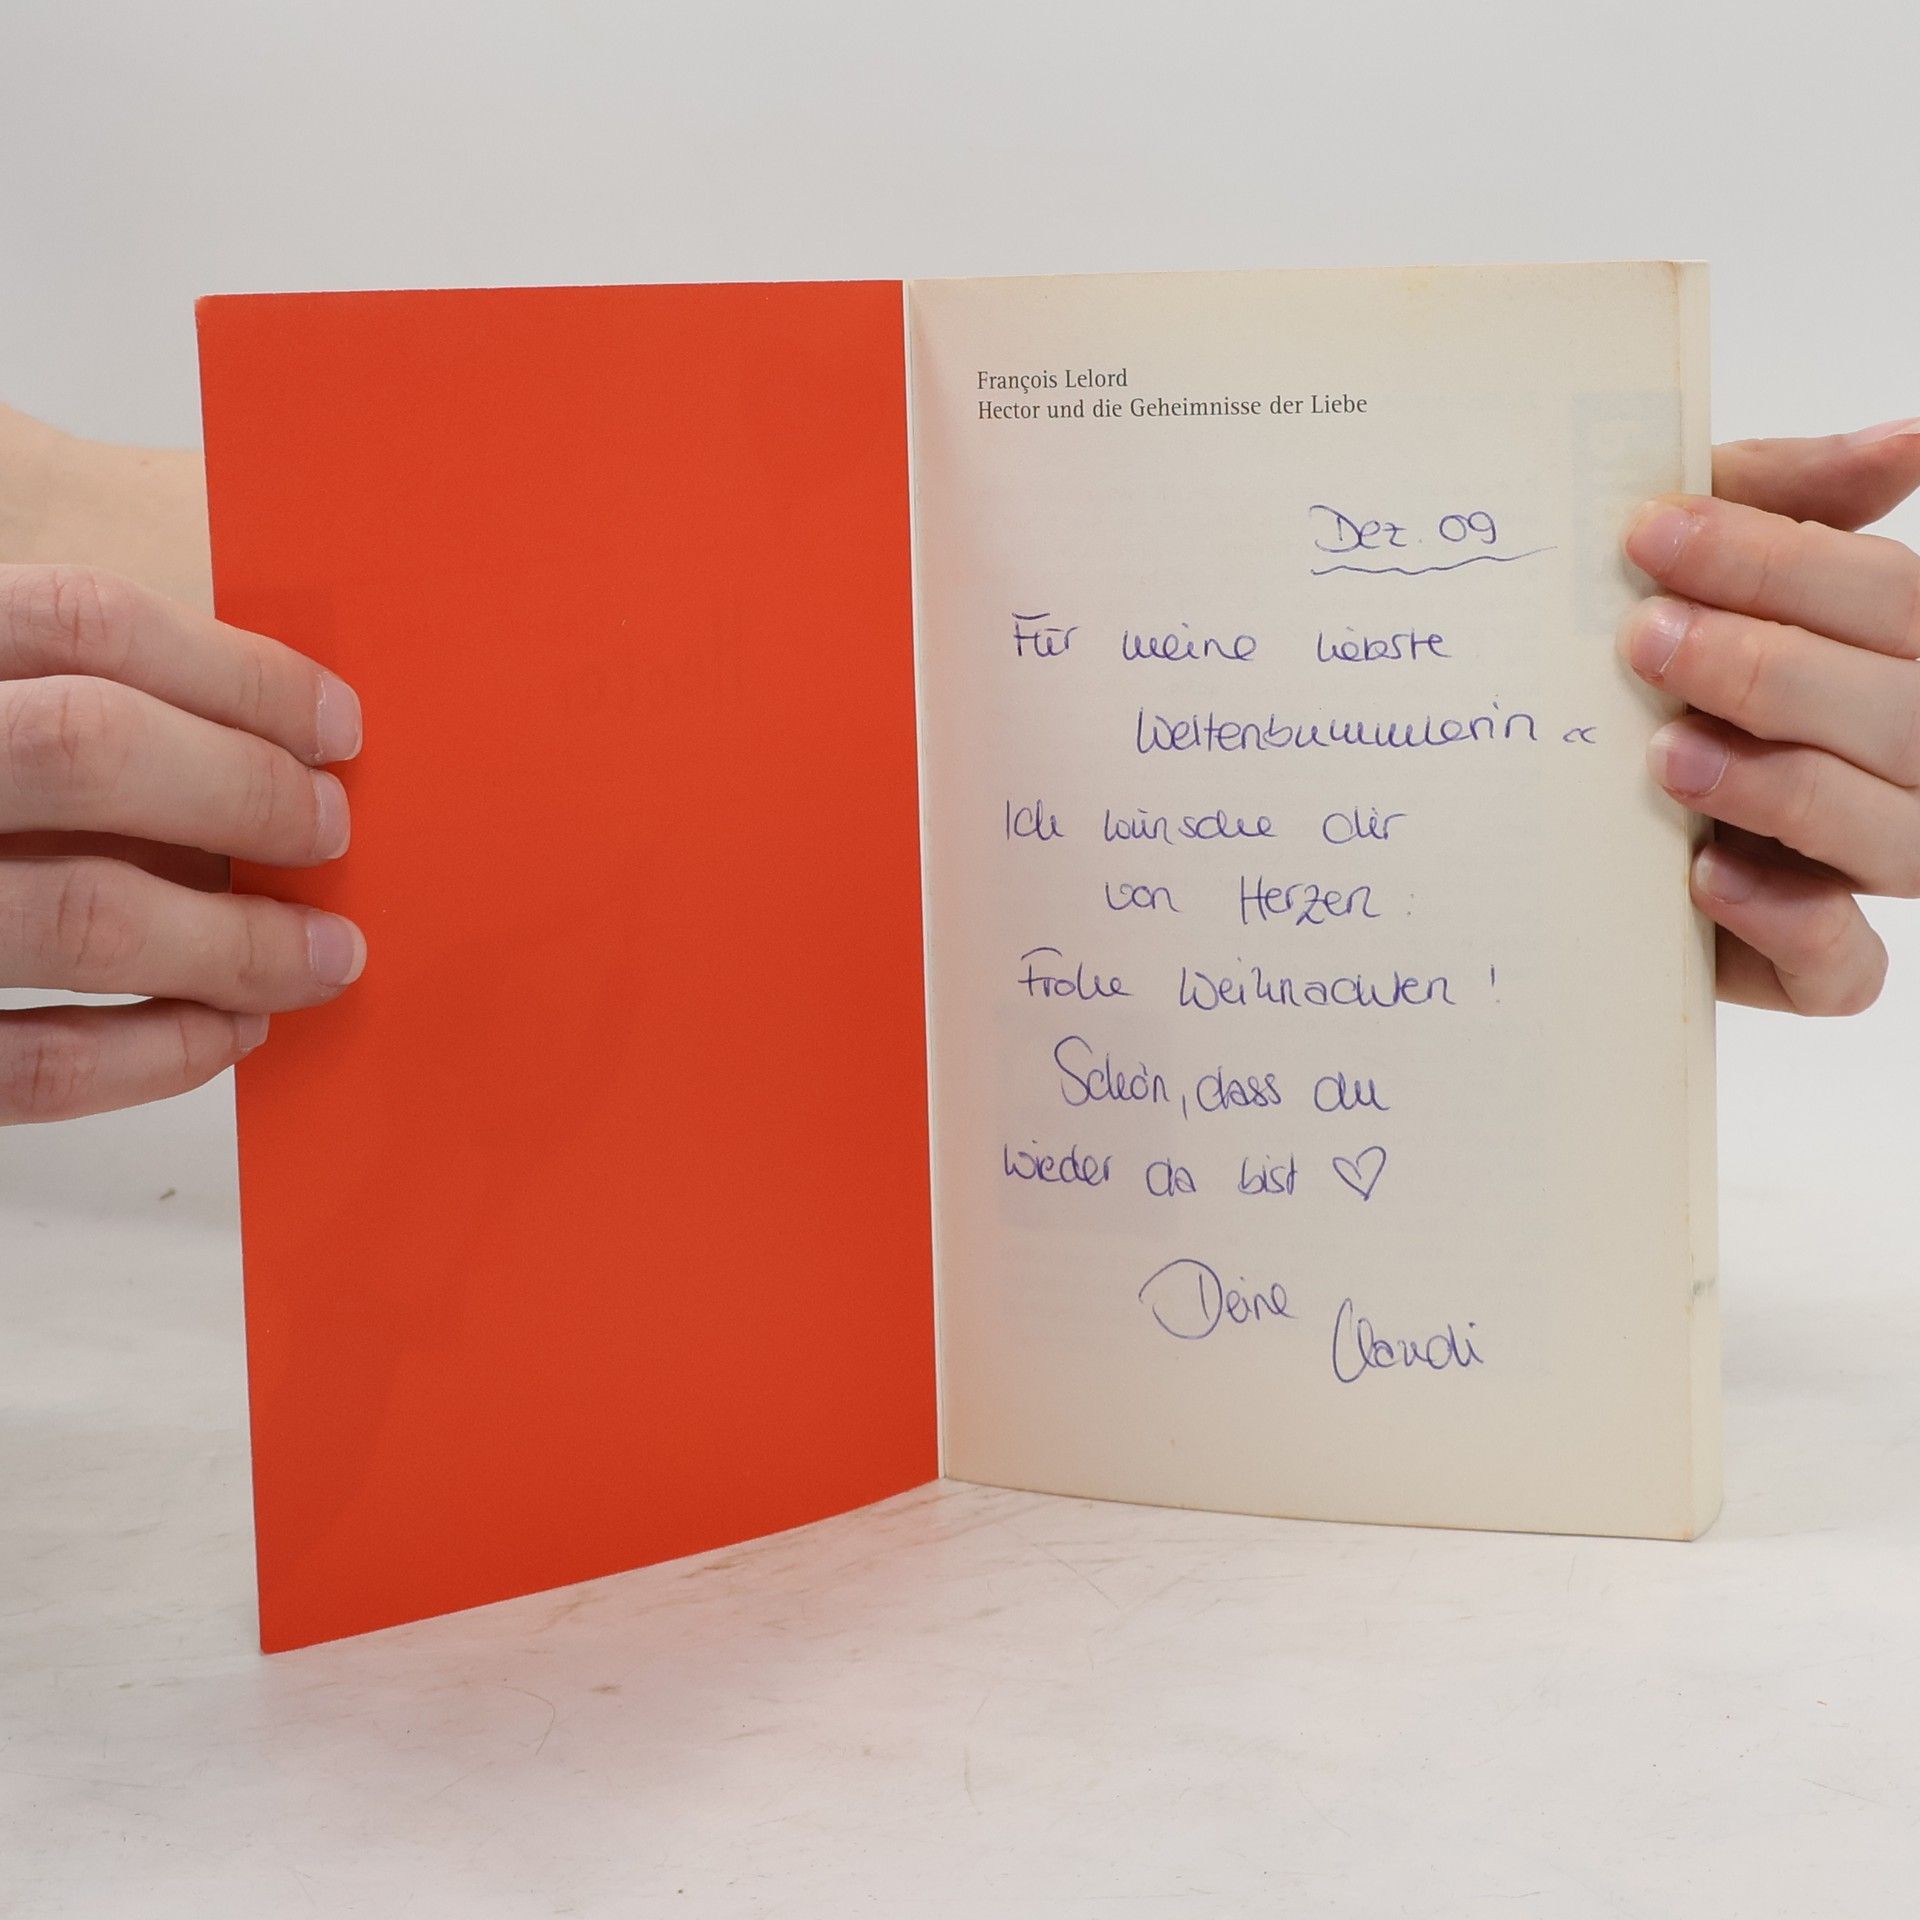 François Lelord
Hector und die Geheimnisse der Liebe
Dez. 09
Für meine liebste
Weltenbummlerin
Ich wünsche dir
von Herzen:
Frohe Weihnachten!
Schön, dass du
wieder da bist ♡
Deine
Claudi